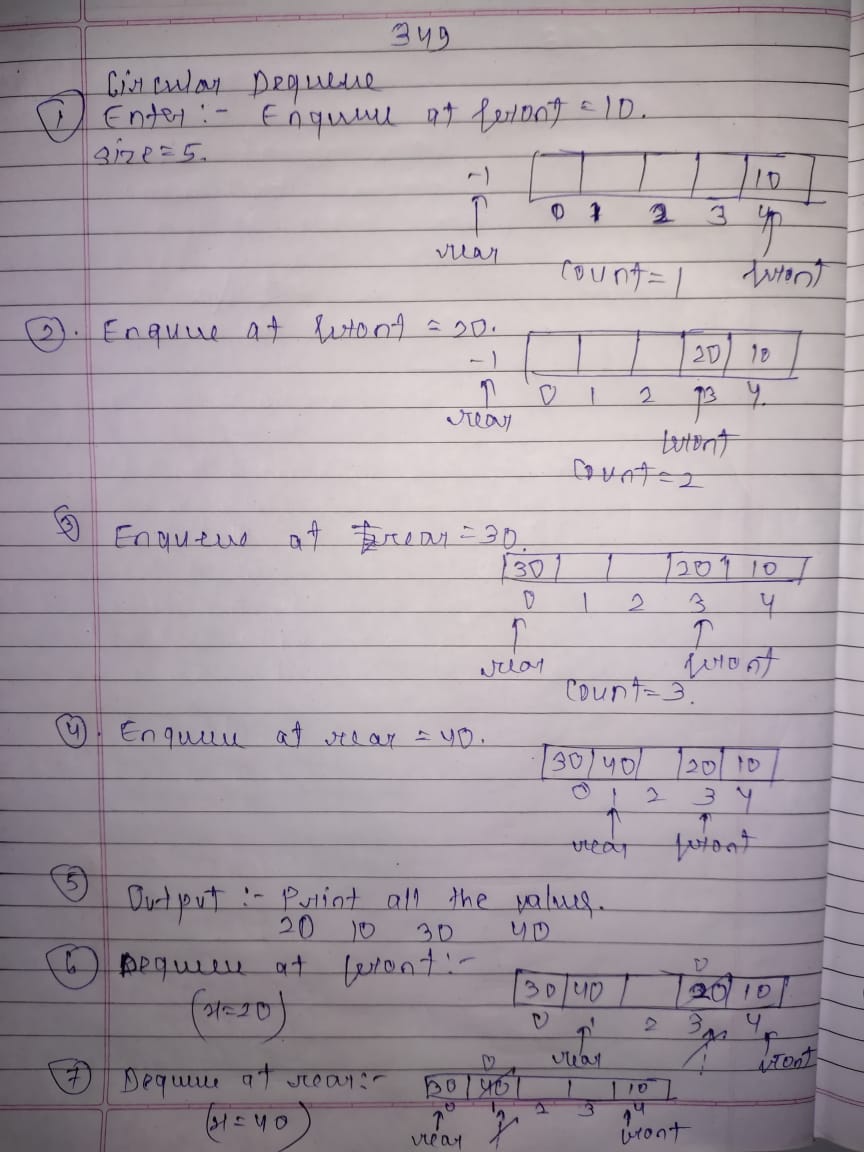 349
Circular Dequeue
① Enter :- Enqueue at front = 10.
size = 5.
-1 10
0 1 2 3 4
rear front
count = 1
②. Enqueue at front = 20.
-1 20 10
0 1 2 3 4.
rear front
count = 2
③ Enqueue at rear = 30.
30 20 10
0 1 2 3 4
rear front
count = 3.
④. Enqueue at rear = 40.
30 40 20 10
0 1 2 3 4
rear front
⑤ Output :- Print all the values.
20 10 30 40
⑥ Dequeue at front :-
0
30 40 20 10
(x=20)
0 1 2 3 4
rear front
⑦ Dequeue at rear :-
0
30 40 10
0 1 2 3 4
(x = 40)
rear front